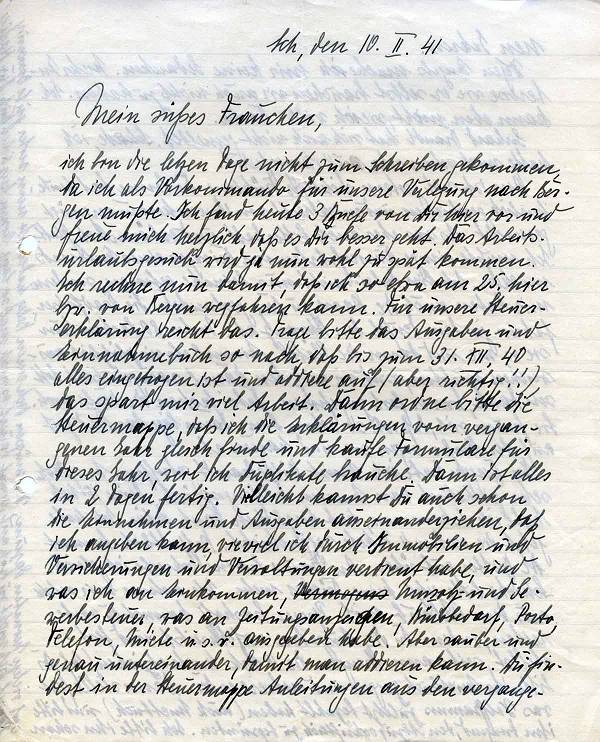 Sch, den 10. II. 41
Mein süßes Frauchen,
ich bin die letzen Tage nicht zum Schreiben gekommen,
da ich als Vorkommando für unsere Verlegung nach Ber-
gen mußte. Ich fand heute 3 Briefe von Dir hier vor und
freue mich herzlich, daß es Dir besser geht. Das Arbeits-
urlaubsgesuch wird ja nun wohl zu spät kommen.
Ich rechne nun damit, daß ich so etwa am 25. hier
bzw. von Bergen wegfahren kann. Für unsere Steuer-
erklärung reicht das. Trage bitte das Ausgaben und
Einnahmebuch so nach, daß bis zum 31. XII. 40
alles eingetragen ist und addiere auf (aber richtig!!),
das spart mir viel Arbeit. Dann ordne bitte die
Steuermappe, daß ich die Erklärungen vom vergan-
genen Jahr gleich finde und kaufe Formulare für
dieses Jahr, weil ich Duplikate brauche. Dann ist alles
in 2 Tagen fertig. Vielleicht kannst Du auch schon
die Einnahmen und Ausgaben auseinanderziehen, daß
ich angeben kann, wieviel ich durch Immobilien und
Versicherungen und Verwaltungen verdient habe, und
was ich an Einkommen, Umsatz- und Ge-
werbesteuer, was an Zeitungsanzeigen, Bürobedarf, Porto,
Telefon, Miete u.s.w. ausgegeben habe. Aber sauber und
genau untereinander, damit man addieren kann. Du fin-
dest in der Steuermappe Anleitungen aus den vergange-